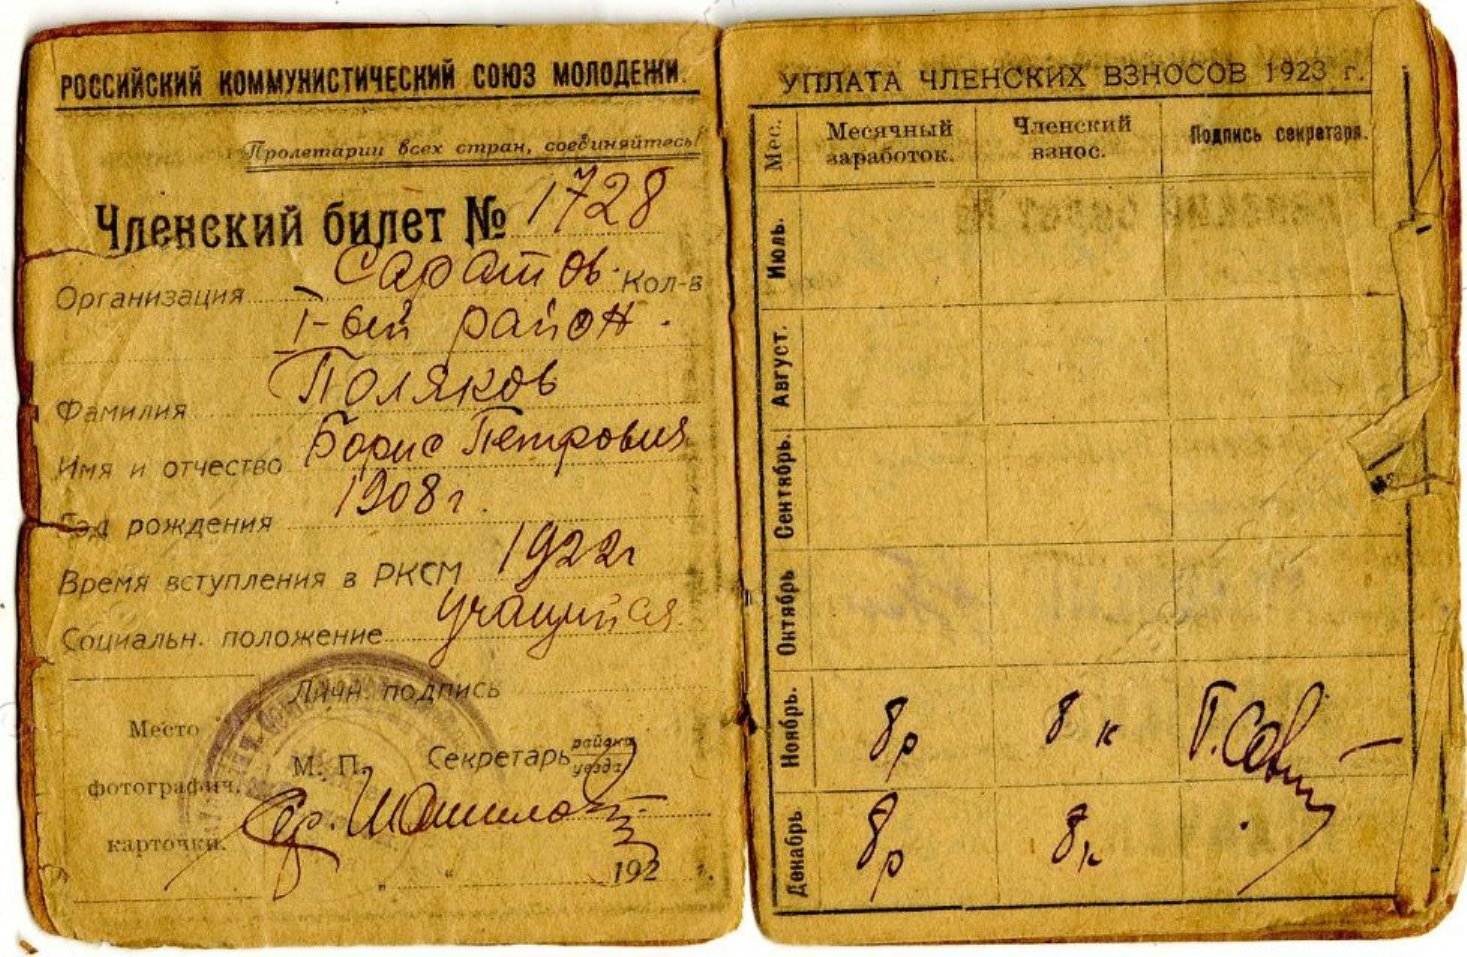 РОССИЙСКИЙ КОММУНИСТИЧЕСКИЙ СОЮЗ МОЛОДЕЖИ.
Пролетарии всех стран, соединяйтесь!
Членский билет № 1728
Организация Саратов. Кол-в
I-ый район.
Фамилия Поляков
Имя и отчество Борис Петрович
Год рождения 1908 г.
Время вступления в РКСМ 1922 г
Социальн. положение учащийся
Личн. подпись
Место
фотографич.
карточки.
М. П.
Секретарь райома
уезда
192 3 г.
УПЛАТА ЧЛЕНСКИХ ВЗНОСОВ 1923 г.
Мес. Месячный заработок. Членский взнос. Подпись секретаря.
Июль.
Август.
Сентябрь.
Октябрь
Ноябрь. 8 р 8 к
Декабрь 8 р 8 к